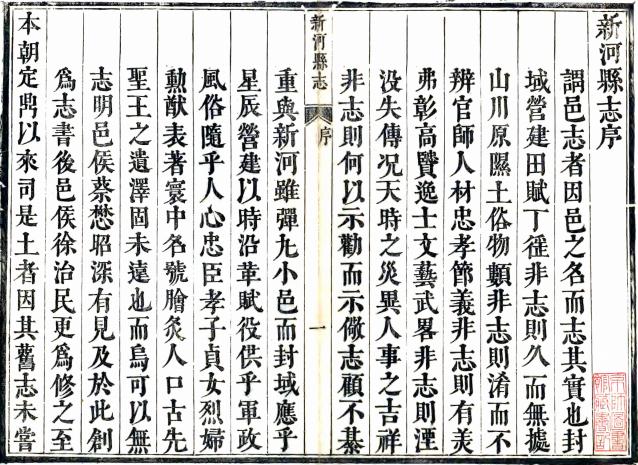 新河縣志序
謂邑志者因邑之名而志其實也封
域營建田賦丁徭非志則久而無據
山川原隰土俗物類非志則淆而不
辨官師人材忠孝節義非志則有美
弗彰高賢逸士文藝武畧非志則湮
沒失傳况天時之災異人事之吉祥
非志則何以示勸而示儆志顧不綦
新河縣志 序 一
重與新河雖彈丸小邑而封域應乎
星辰營建以時沿革賦役供乎軍政
風俗隨乎人心忠臣孝子貞女烈婦
勳猷表著寰中名號膾炙人口古先
聖王之遺澤固未遠也而烏可以無
志明邑侯蔡懋昭深有見及於此創
爲志書後邑侯徐治民更爲修之至
本朝定鼎以來司是土者因其舊志未嘗